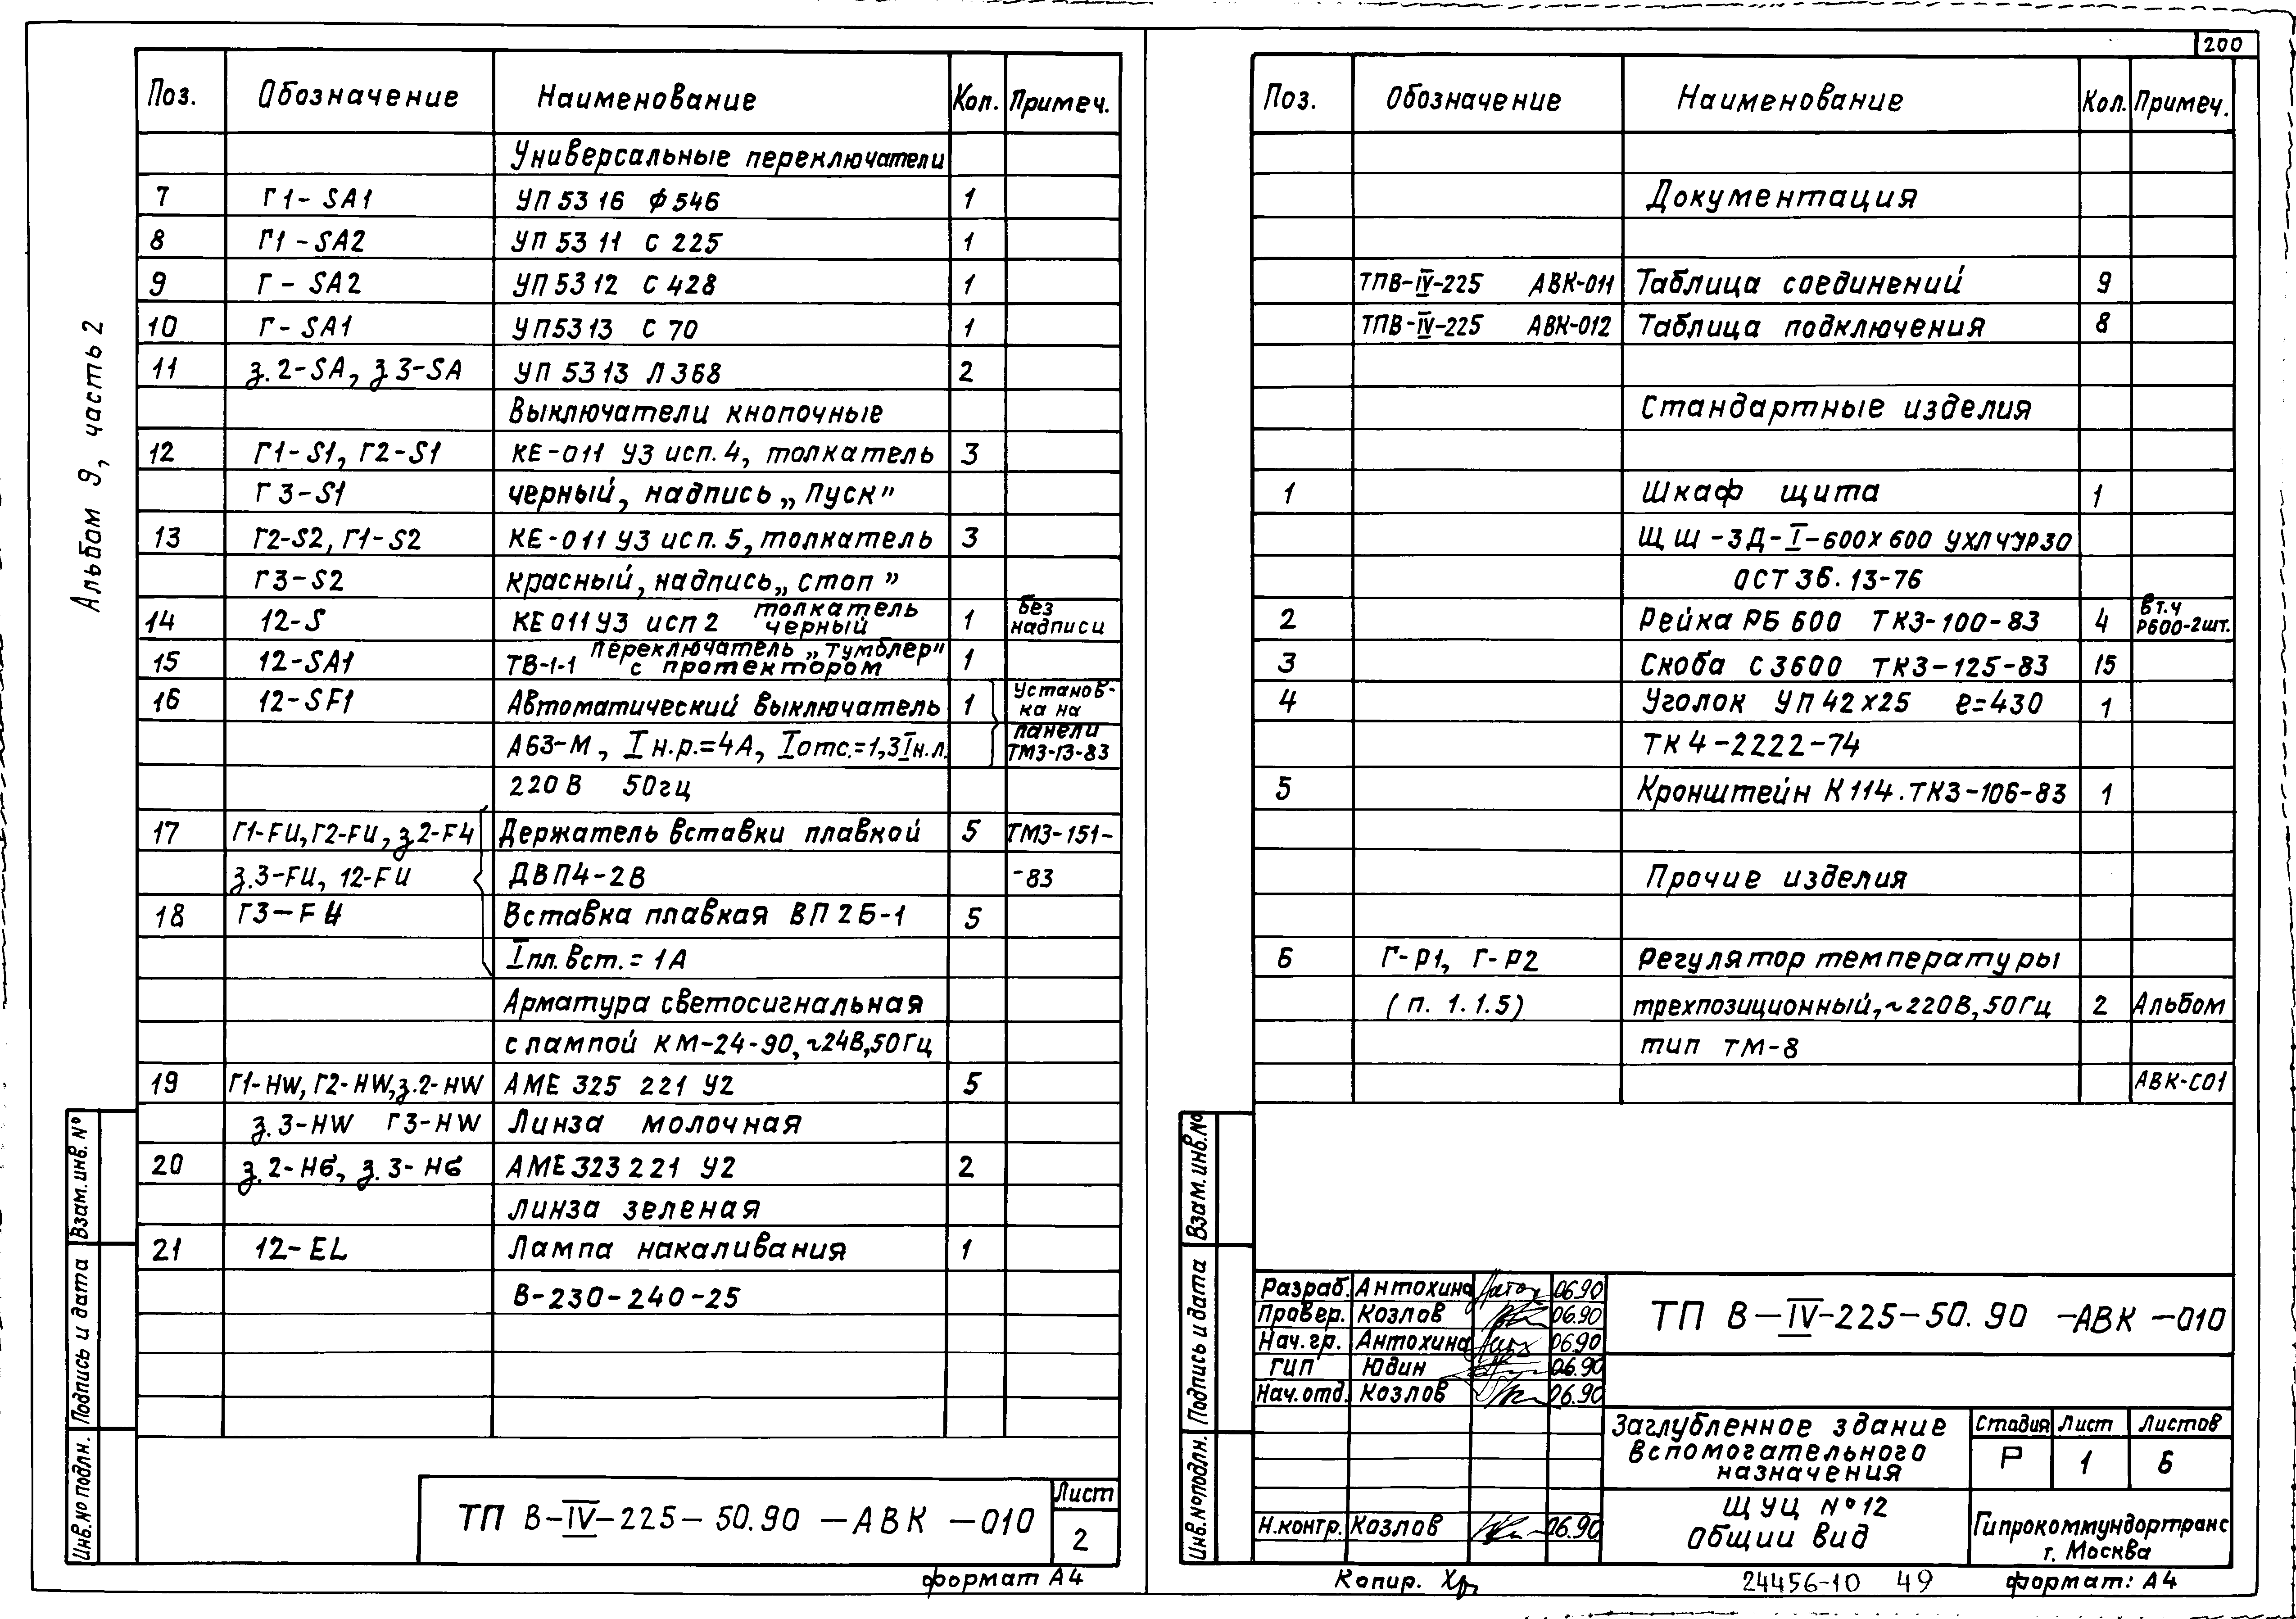 200
Альбом 9, часть 2
Поз. Обозначение Наименование Кол. Примеч.
Универсальные переключатели
7 Г1-SA1 УП 5316 Ф546 1
8 Г1-SA2 УП 5311 С 225 1
9 Г-SA2 УП 5312 С 428 1
10 Г-SA1 УП5313 С 70 1
11 з.2-SA, з 3-SA УП 5313 Л368 2
Выключатели кнопочные
12 Г1-S1, Г2-S1 КЕ-011 У3 исп. 4, толкатель 3
Г3-S1 черный, надпись „Пуск"
13 Г2-S2, Г1-S2 КЕ-011 У3 исп. 5, толкатель 3
Г3-S2 красный, надпись „стоп"
14 12-S КЕ 011У3 исп 2 толкатель черный 1 без надписи
15 12-SA1 ТВ-1-1 переключатель „тумблер" с протектором 1
16 12-SF1 Автоматический выключатель 1 Установ-
ка на
А63-М, Iн.р.=4А, Iотс.=1,3Iн.л. панели
ТМ3-13-83
220В 50гц
17 Г1-FU, Г2-FU, з.2-FU Держатель вставки плавкой 5 ТМ3-151-
з.3-FU, 12-FU ДВП4-2В -83
18 Г3-FU Вставка плавкая ВП2Б-1 5
Iпл.вст.=1А
Арматура светосигнальная
с лампой КМ-24-90, ~24В, 50Гц
19 Г1-HW, Г2-HW, з.2-HW АМЕ 325 221 У2 5
з.3-HW Г3-HW Линза молочная
20 з.2-HG, з.3-HG АМЕ323221 У2 2
линза зеленая
21 12-EL Лампа накаливания 1
В-230-240-25
Взам. инв. №
Подпись и дата
Инв. № подлн.
ТП В-IV-225-50.90 -АВК -010
Лист
2
формат А4
Поз. Обозначение Наименование Кол. Примеч.
Документация
ТПВ-IV-225 АВК-011 Таблица соединений 9
ТПВ-IV-225 АВК-012 Таблица подключения 8
Стандартные изделия
1 Шкаф щита 1
ЩШ-3Д-I-600х600 УХЛ4УР30
ОСТ 36.13-76
2 Рейка РБ 600 ТК3-100-83 4 в т.ч
Р600-2шт.
3 Скоба С3600 ТК3-125-83 15
4 Уголок УП 42х25 e=430 1
ТК4-2222-74
5 Кронштейн К114.ТК3-106-83 1
Прочие изделия
6 Г-Р1, Г-Р2 Регулятор температуры
(п. 1.1.5) трехпозиционный, ~220В, 50Гц 2 Альбом
тип ТМ-8
АВК-С01
Взам. инв. №
Подпись и дата
Инв. № подлн.
Разраб. Антохина 06.90
Провер. Козлов 06.90
Нач. гр. Антохина 06.90
ГИП Юдин 06.90
Нач. отд. Козлов 06.90
Н.контр. Козлов 06.90
ТП В-IV-225-50.90 -АВК -010
Заглубленное здание
вспомогательного
назначения
Стадия Лист Листов
Р 1 6
ЩУЦ №12
Общии вид
Гипрокоммундортранс
г. Москва
Копир.
24456-10 49
формат: А4